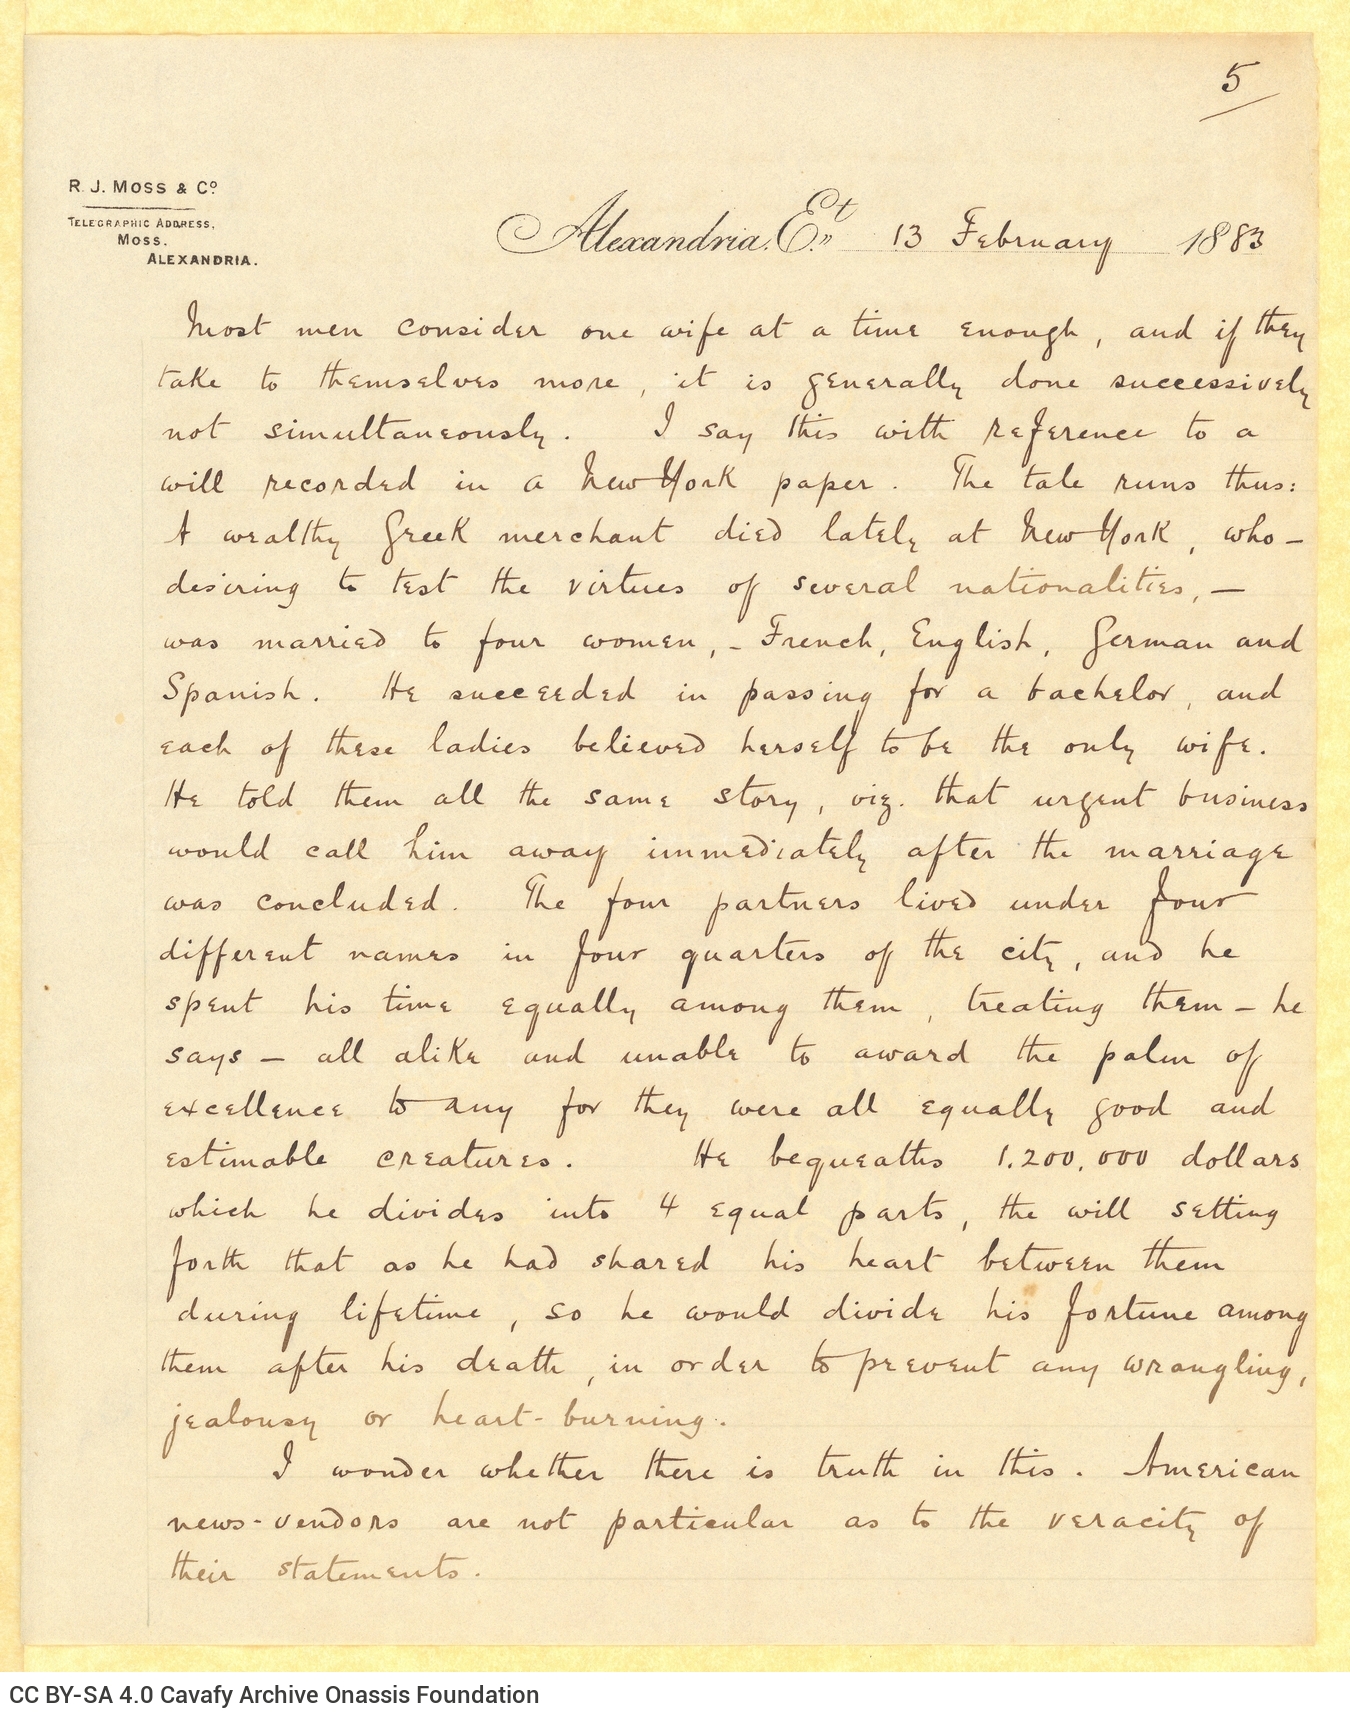 5
R. J. MOSS & Cº
TELEGRAPHIC ADDRESS,
MOSS.
ALEXANDRIA.
Alexandria. Et,, 13 February 1883
Most men consider one wife at a time enough, and if they
take to themselves more, it is generally done successively
not simultaneously. I say this with reference to a
will recorded in a New York paper. The tale runs thus:
A wealthy Greek merchant died lately at New York, who —
desiring to test the virtues of several nationalities, —
was married to four women, — French, English, German and
Spanish. He succeeded in passing for a bachelor, and
each of these ladies believed herself to be the only wife.
He told them all the same story, viz. that urgent business
would call him away immediately after the marriage
was concluded. The four partners lived under four
different names in four quarters of the city, and he
spent his time equally among them, treating them — he
says — all alike and unable to award the palm of
excellence to any for they were all equally good and
estimable creatures. He bequeaths 1.200,000 dollars
which he divides into 4 equal parts, the will setting
forth that as he had shared his heart between them
during lifetime, so he would divide his fortune among
them after his death, in order to prevent any wrangling,
jealousy or heart-burning.
I wonder whether there is truth in this. American
news-vendors are not particular as to the veracity of
their statements.
CC BY-SA 4.0 Cavafy Archive Onassis Foundation